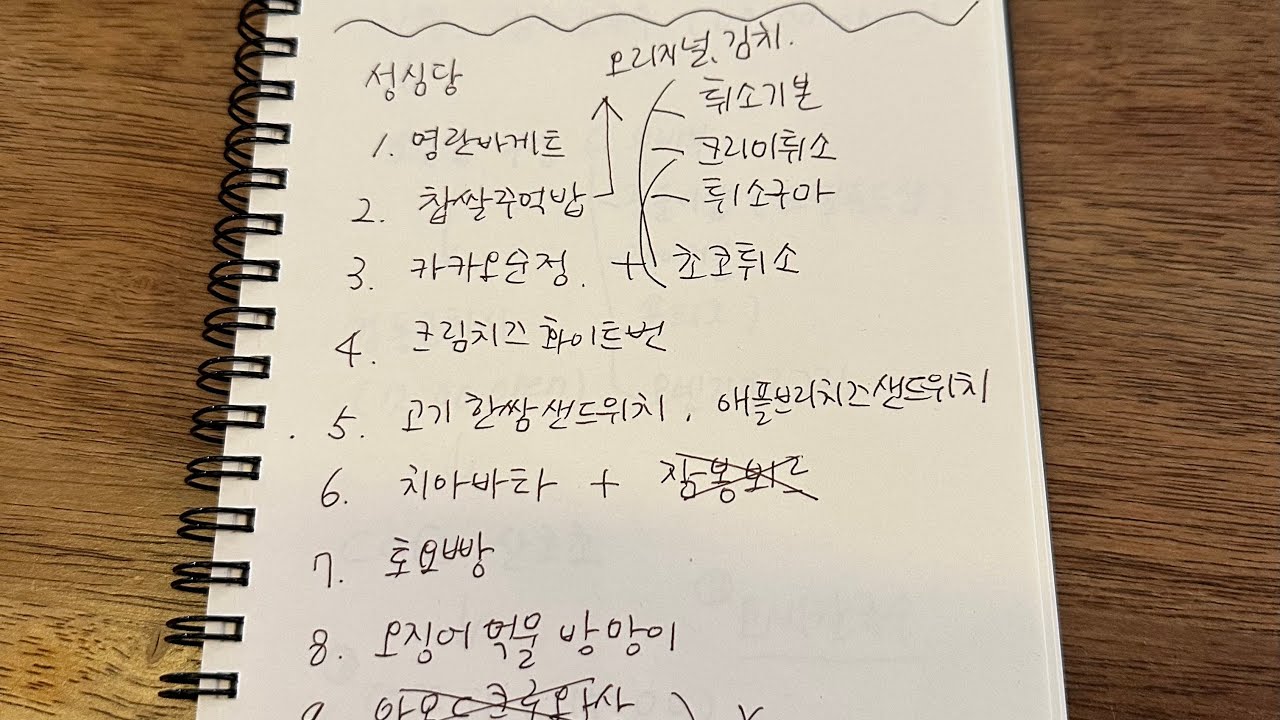 성심당
오리지널, 김치.
튀소기본
1. 명란바게트
크리미튀소
2. 찹쌀주먹밥
튀소구마
3. 카카오순정. + 초코튀소
4. 크림치즈 화이트번
5. 고기 한쌈샌드위치, 애플브리치즈샌드위치
6. 치아바타 +
7. 토요빵
8. 오징어 먹물 방망이
9.